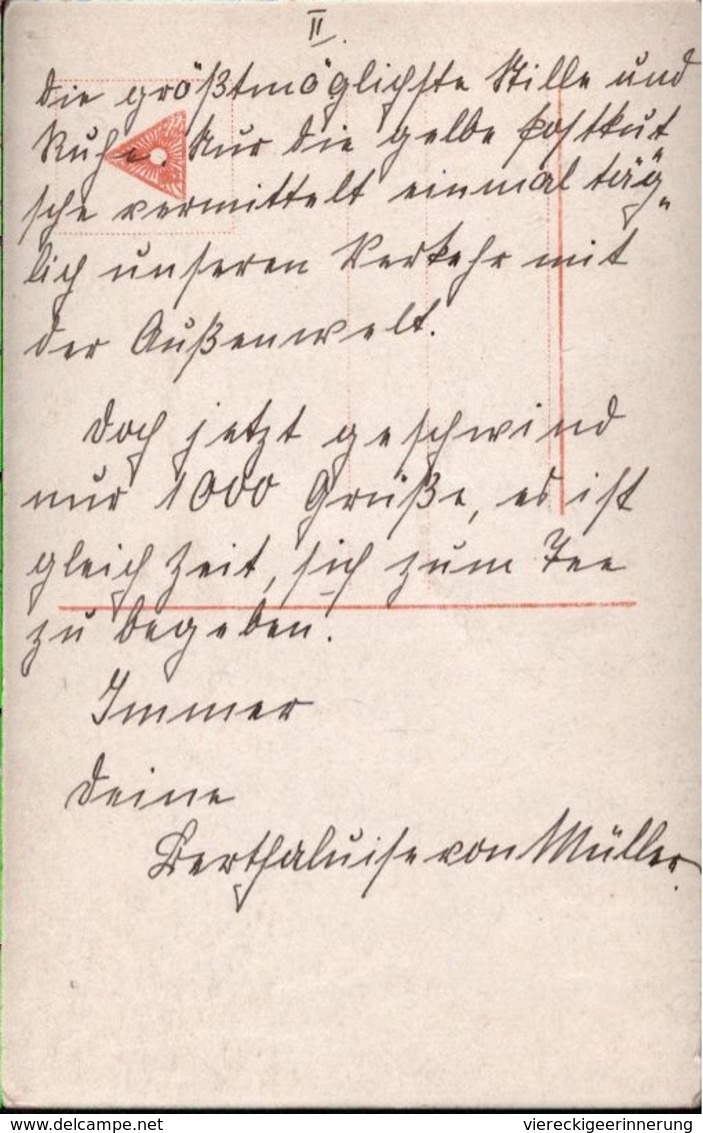 II.
die größtmöglichste Stille und
Ruhe. Nur die gelbe Postkut„
sche vermittelt einmal täg„
lich unseren Verkehr mit
der Außenwelt.
Doch jetzt geschwind
nur 1000 Grüße, es ist
gleich Zeit, sich zum Tee
zu begeben.
Immer
Deine
Berthaluise von Müller.
delcampe.net
viereckigeerinnerung